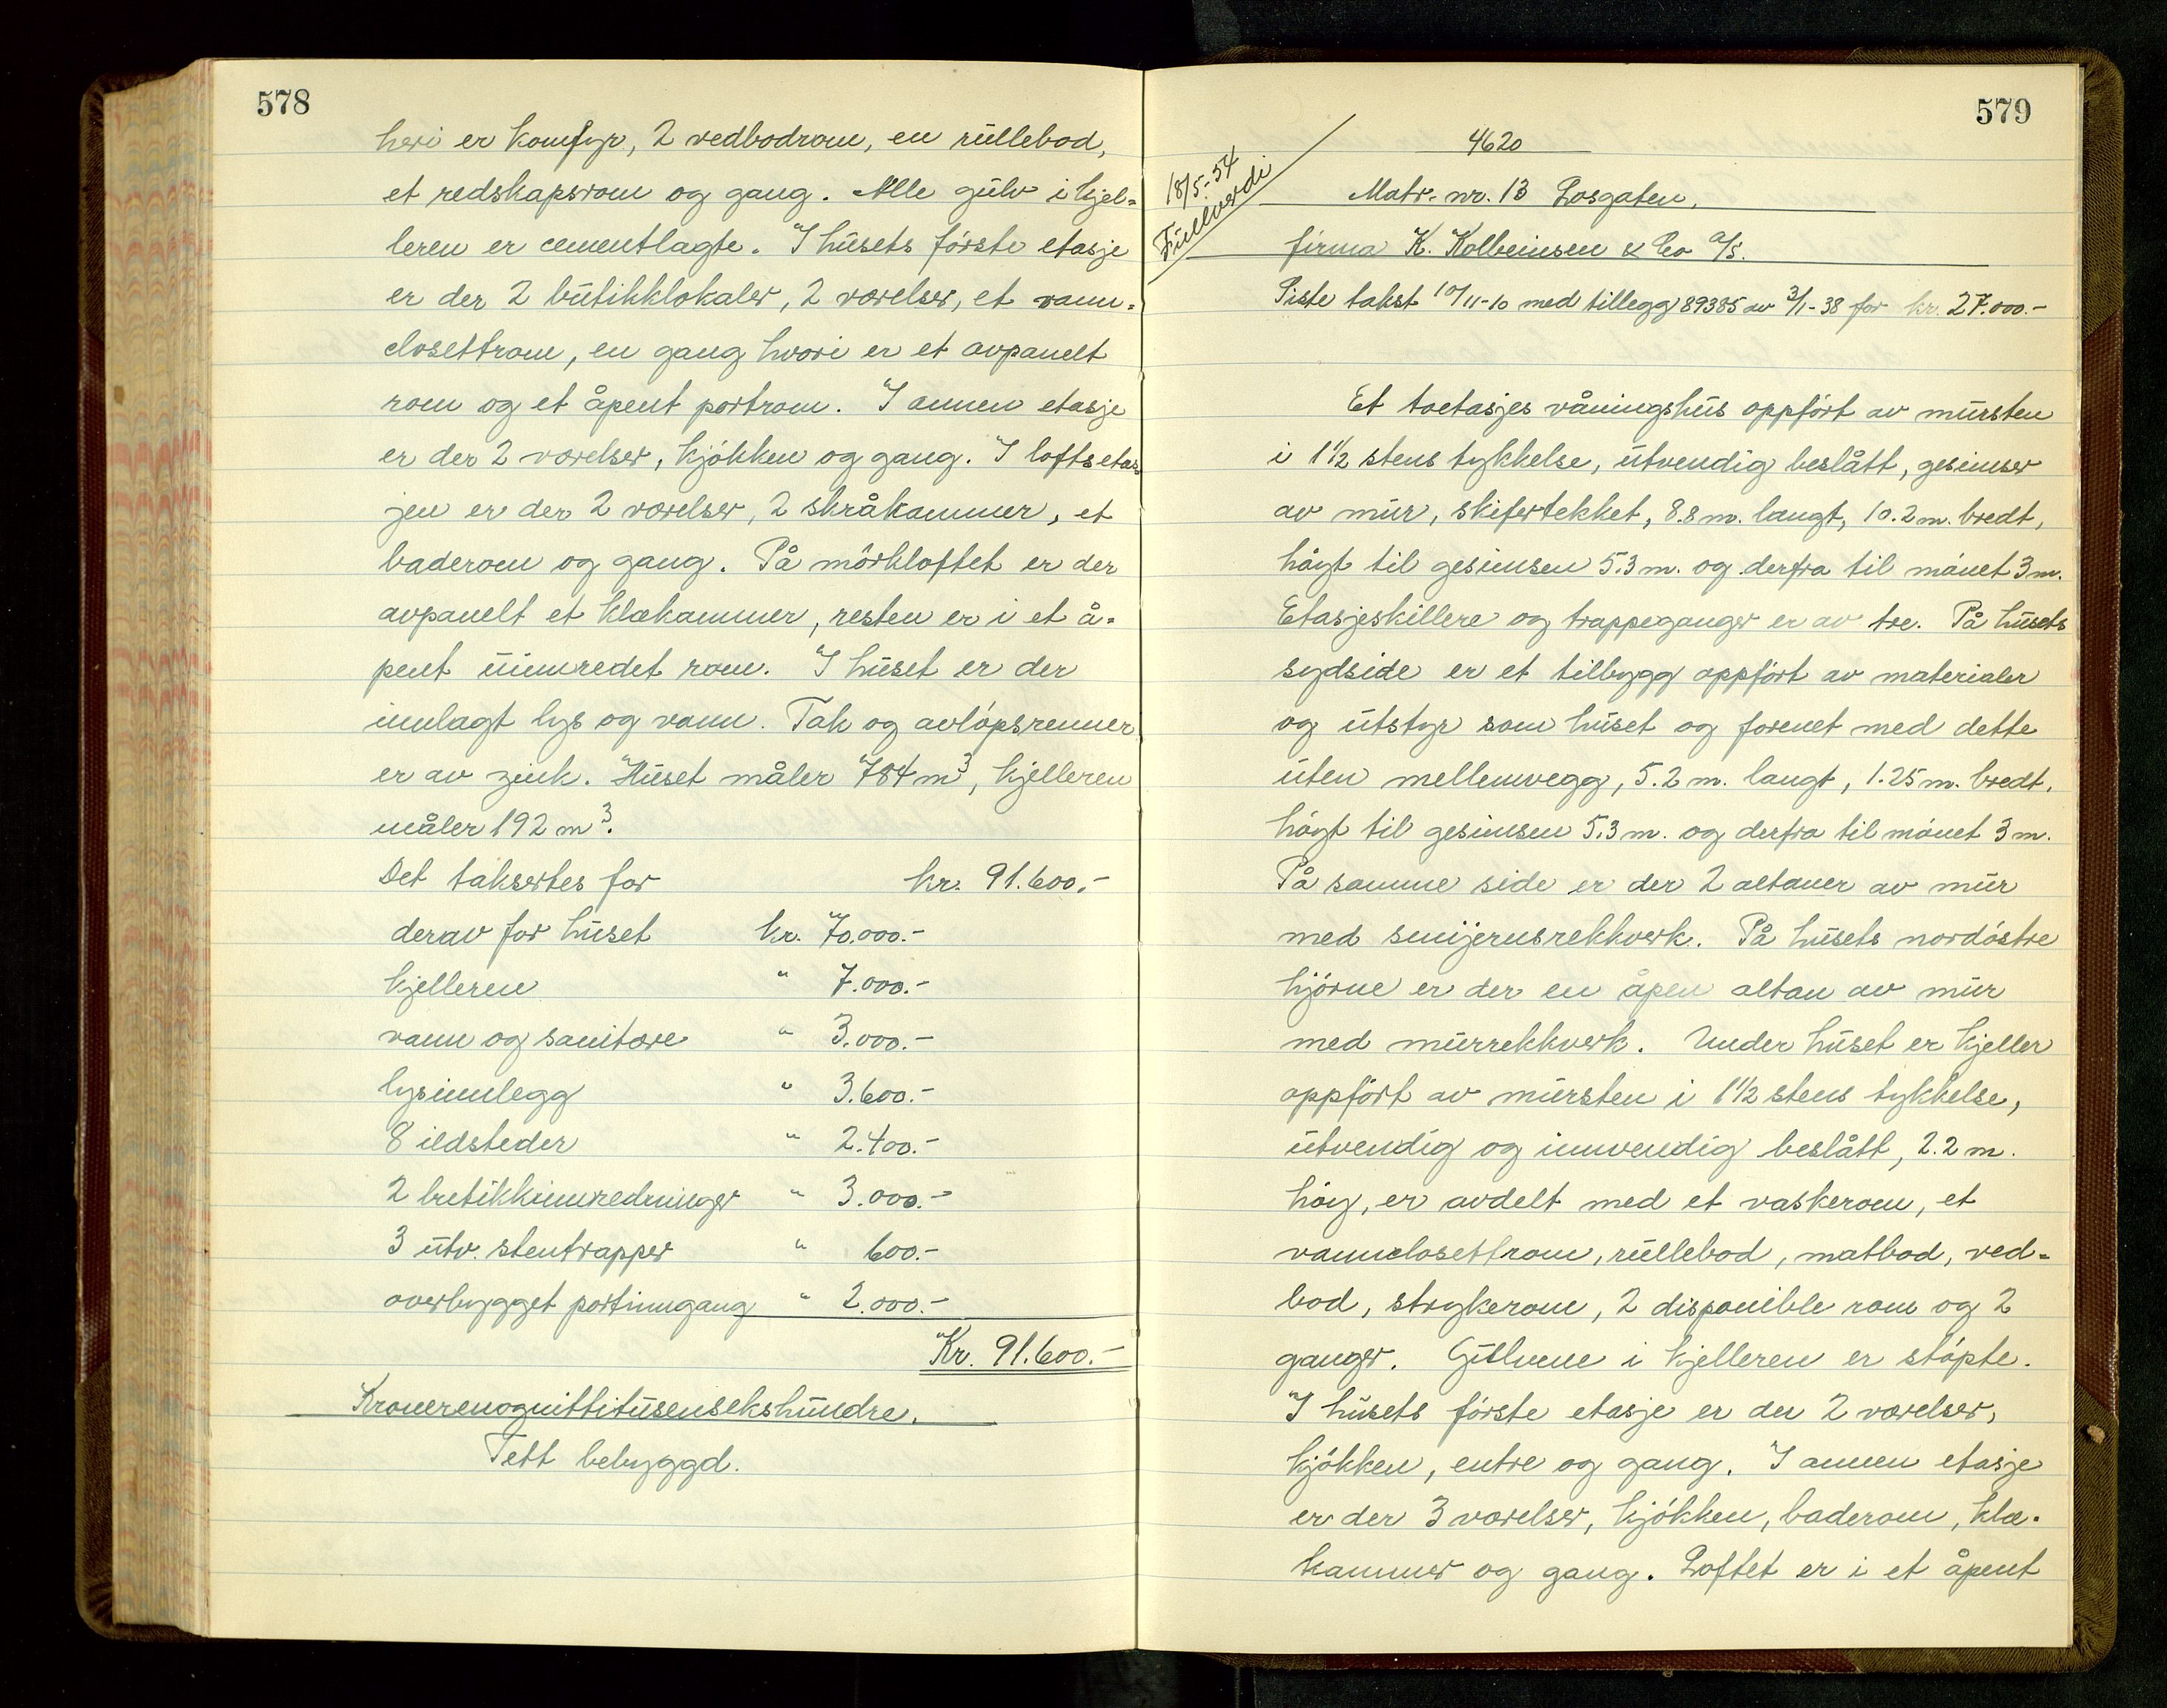 578
hvri er komfyr, 2 vedbodrom, en rullebod,
et redskapsrom og gang. Alle gulv i kjel-
leren er cementlagte. I husets første etasje
er der 2 butikklokaler, 2 værelser, et vann-
closettrom, en gang hvori er et avpanelt
rom og et åpent portrom. I annen etasje
er der 2 værelser, kjøkken og gang. I loftsetas-
jen er der 2 værelser, 2 skråkammer, et
baderom og gang. På mørkloftet er der
avpanelt et klækammer, resten er i et å-
pent uinnredet rom. I huset er der
innlagt lys og vann. Tak og avløpsrenner
er av zink. Huset måler 784 m³, kjelleren
måler 192 m³.
Det taksertes for kr. 91.600.-
derav for huset kr. 70.000.-
kjelleren " 7.000.-
vann og sanitære " 3.000.-
lysinnlegg " 3.600.-
8 ildsteder " 2.400.-
2 butikkinnredninger " 3.000.-
3 utv. stentrapper " 600.-
overbygget portinngang " 2.000.-
Kr. 91.600.-
Kronerenognittitusensekshundre.
Tett bebyggd.
579
18/5-54
Fullverdi
4620
Matr. nr. 13 Losgaten.
firma K. Kolbeinsen & Co A/S.
Siste takst 10/11-10 med tillegg 89385 av 3/1-38 for kr. 27.000.-
Et toetasjes våningshus oppført av mursten
i 1½ stens tykkelse, utvendig beslått, gesimser
av mur, skifertekket, 8.8 m. langt, 10.2 m. bredt,
høgt til gesimsen 5.3 m. og derfra til mønet 3 m.
Etasjeskillere og trappeganger er av tre. På husets
sydside er et tilbygg oppført av materialer
og utstyr som huset og forenet med dette
uten mellemvegg, 5.2 m. langt, 1.25 m. bredt,
høgt til gesimsen 5.3 m. og derfra til mønet 3 m.
På samme side er der 2 altaner av mur
med smijernsrekkverk. På husets nordøstre
hjørne er der en åpen altan av mur
med murrekkverk. Under huset er kjeller
oppført av mursten i 1½ stens tykkelse,
utvendig og innvendig beslått, 2.2 m.
høg, er avdelt med et vaskerom, et
vannclosettrom, rullebod, matbod, ved-
bod, strykerom, 2 disponible rom og 2
ganger. Gulvene i kjelleren er støpte.
I husets første etasje er der 2 værelser,
kjøkken, entre og gang. I annen etasje
er der 3 værelser, kjøkken, baderom, klæ-
kammer og gang. Loftet er i et åpent